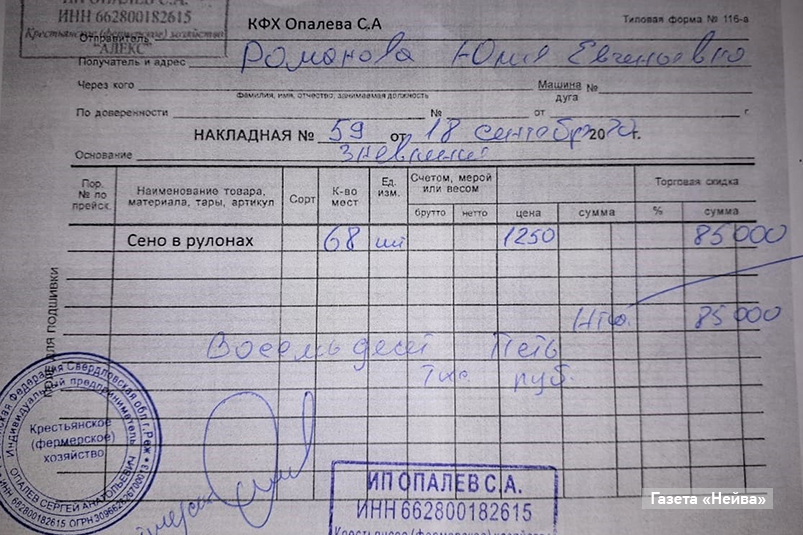 ИП ОПАЛЕВ С.А.
ИНН 662800182615
Крестьянское (фермерское) хозяйство
"АЛЕКС"
КФХ Опалева С.А
Типовая форма № 116-а
Отправитель
Получатель и адрес Романова Юлия Евгеньевна
Через кого
Машина № 
дуга
фамилия, имя, отчество, занимаемая должность
По доверенности № от г.
НАКЛАДНАЯ № 59 от 18 сентября 2020 г.
Основание
Пор. № по прейск.
Наименование товара, материала, тары, артикул
Сорт
К-во мест
Ед. изм.
Счетом, мерой или весом
Торговая скидка
брутто нетто цена сумма % сумма
Сено в рулонах 68 шт 1250 85000
Ито. 85000
Восемьдесят Пять
Тыс. руб.
ДЛЯ ПОДШИВКИ
Федерация Свердловская обл г. Реж
Индивидуальный предприниматель
Крестьянское
(фермерское)
хозяйство
ОПАЛЕВ СЕРГЕЙ АНАТОЛЬЕВИЧ
ИНН 662800182615
ИП ОПАЛЕВ С.А.
ИНН 662800182615
Крестьянское (фермерское) хозяйство
Газета «Нейва»